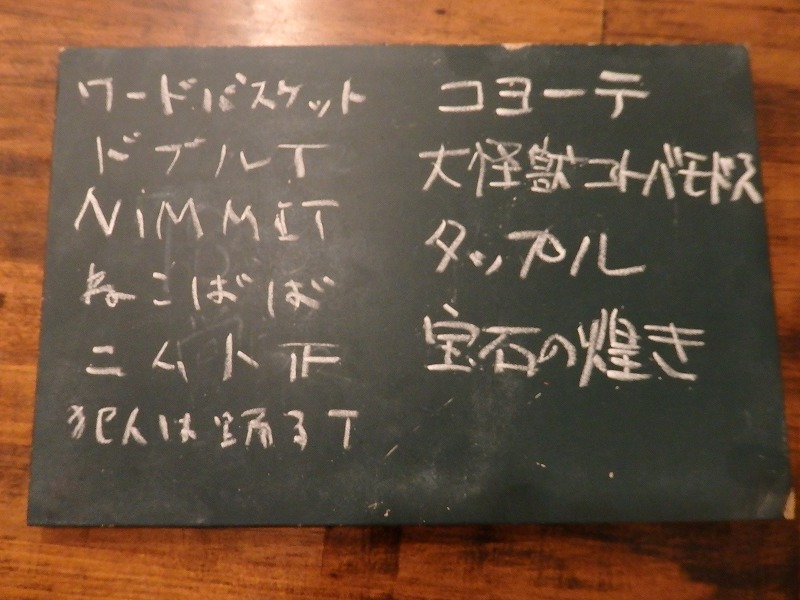 ワードバスケット
ドブル T
NiMMIT
ねこばば
ニムト 正
犯人は踊る T
コヨーテ
大怪獣コトバモドス
タップル
宝石の煌き